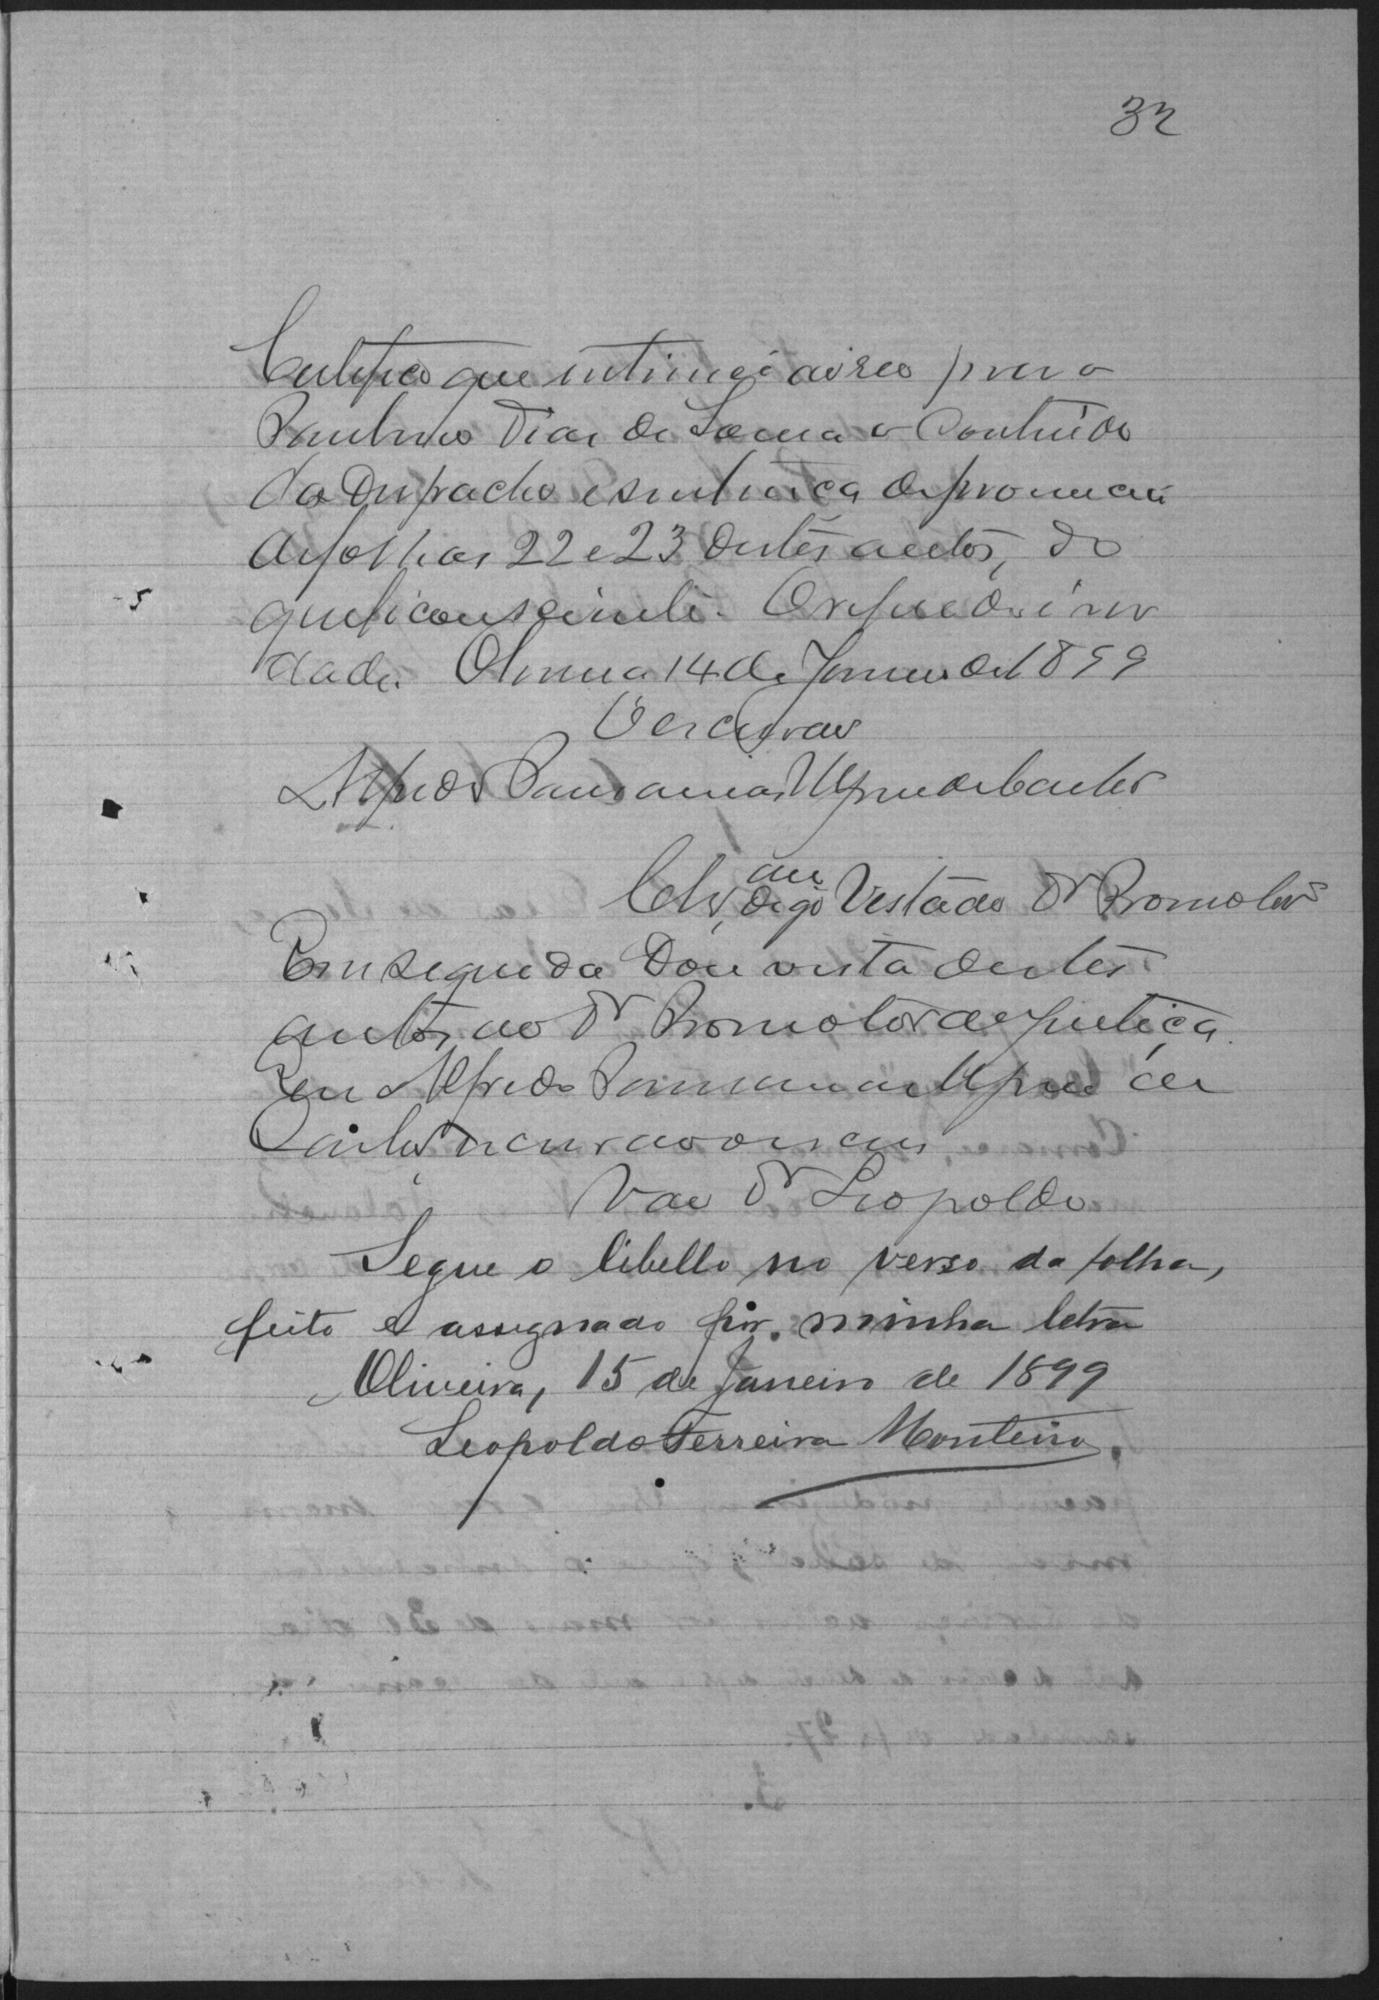 32
Certifico que intimei ao reo preso
Dias de Souza o contheudo
do Despacho e sentença de pronuncia
de folhas 22 e 23 destes autos, do
que ficou sciente. O referido é ver
dade. Oliveira 14 de Janeiro de 1899
O escrivao
Alfredo Pausanias
digo Vista ao Dr Promotor
Em seguida Dou vista destes
autos ao Dr Promotor de justiça
Eu Alfredo Pausanias
escrivao o escrevi
Vae Dr Leopoldo
Segue o libello no verso da folha,
feito e assignado por minha letra
Oliveira, 15 de Janeiro de 1899
Leopoldo Ferreira Monteiro.